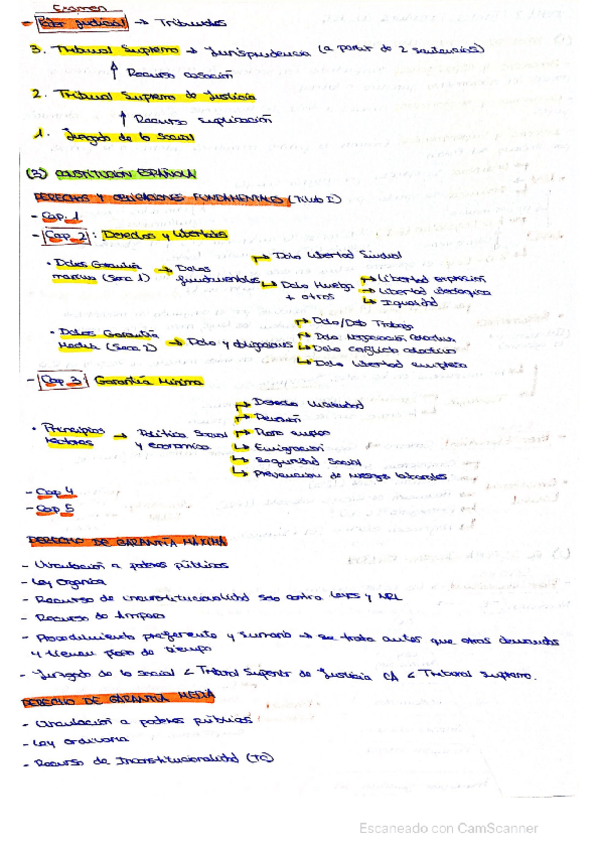 Examen
- Poder Judicial → Tribunales
3. Tribunal Supremo → Jurisprudencia (a partir de 2 sentencias)
↑ Recurso casación
2. Tribunal Supremo de Justicia
↑ Recurso suplicación
1. Juzgado de lo Social
(3) CONSTITUCIÓN ESPAÑOLA
DERECHOS Y OBLIGACIONES FUNDAMENTALES (Título I)
- Cap. 1
- Cap. 2: Derechos y libertades
→ Dcho libertad Sindical
· Dchos Garantía → Dchos
máxima (Secc 1) fundamentales → Dcho Huelga → Libertad expresión
+ otros → Libertad ideológica
→ Igualdad
→ Dcho/Deb Trabajo
· Dchos Garantía → Dcho Negociación colectiva
Media (Secc 2) → Dcho y obligaciones → Dcho conflicto colectivo
→ Dcho libertad empresa
- Cap. 3 Garantía Mínima
→ Derecho
→ Pensión
· Principios → Política Social → Pleno empleo
Rectores y económica → Emigración
→ Seguridad Social
→ Prevención de riesgos laborales
- Cap 4
- Cap 5
DERECHO DE GARANTÍA MÁXIMA
- Vinculación a poderes públicos
- Ley Orgánica
- Recurso de inconstitucionalidad solo contra leyes y NRL
- Recurso de Amparo
- Procedimiento preferente y sumario → se trata antes que otras demandas
y tienen plazo de tiempo
- Juzgado de lo social < Tribunal Superior de Justicia CA < Tribunal Supremo.
DERECHO DE GARANTÍA MEDIA
- Vinculación a poderes públicos
- Ley ordinaria
- Recurso de Inconstitucionalidad (TC)
Escaneado con CamScanner